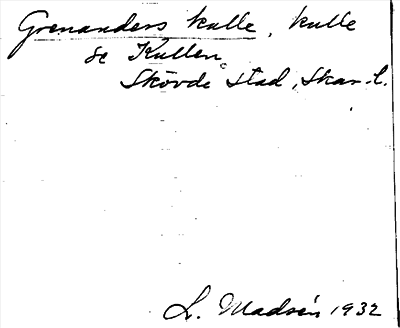 Grenanders kulle, kulle
se Kullen
Skövde stad, Skar. l.
L. Madsén 1932